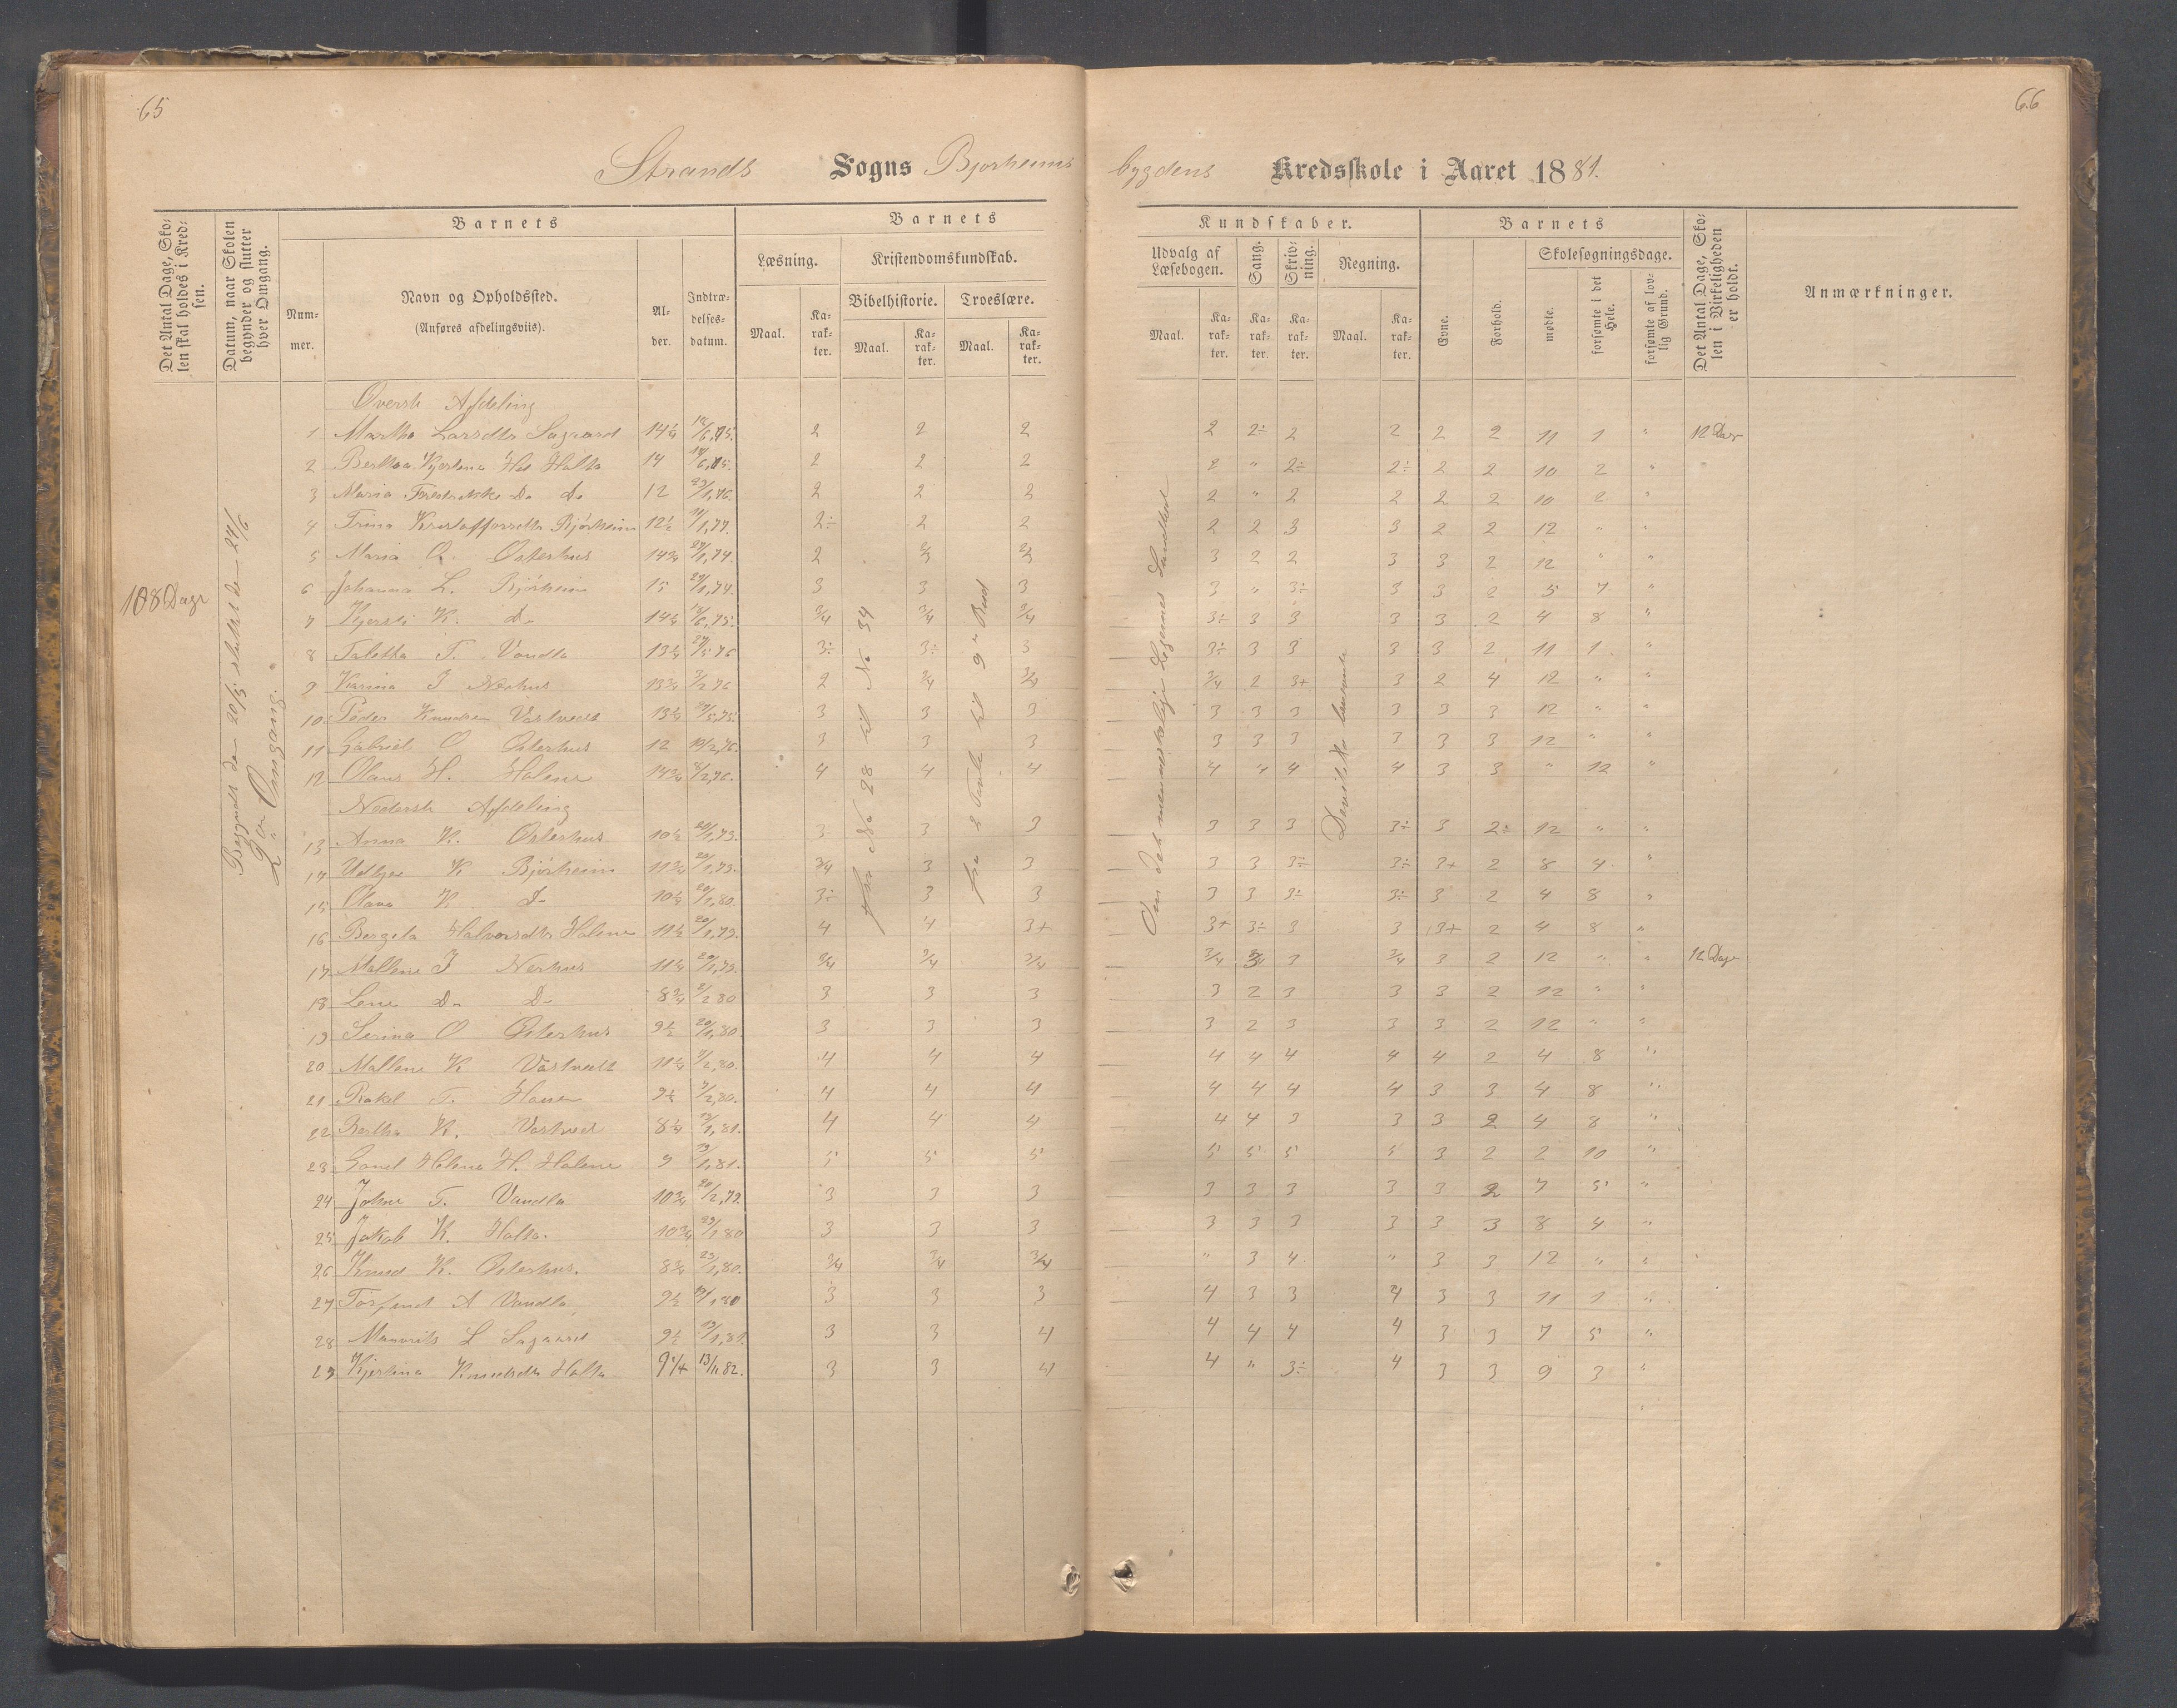 65
66
Strands Sogns Bjorheims bygdens Kredsskole i Aaret 1881.
Det Antal Dage, Skolen skal holdes i Kredsen.
Datum, naar Skolen begynder og slutter hver Omgang.
Barnets
Nummer.
Navn og Opholdssted.
(Anføres afdelingsviis).
Alder.
Indtrædelsesdatum.
Barnets
Læsning.
Maal.
Karakter.
Kristendomskundskab.
Bibelhistorie.
Maal.
Karakter.
Troeslære.
Maal.
Karakter.
Kundskaber.
Udvalg af Læsebogen.
Maal.
Karakter.
Sang.
Karakter.
Skrivning.
Karakter.
Regning.
Maal.
Karakter.
Barnets
Evne.
Forhold.
Skolesøgningsdage.
mødte.
forsømte i det Hele.
forsømte af lovlig Grund.
Det Antal Dage, Skolen i Virkeligheden er holdt.
Anmærkninger.
108 Dage
Begyndt den 20/5 sluttet den 24/6
2den Omgang.
fra No 28 til No 34
Om det menneskelige Legemes
Øverste Afdeling
1 Martha Larsdtr Lagaard 14¼ 2 2 2 2 2÷ 2 2 2 2 11 1 " 12 Dage
2 14 2 2 2 2 " 2÷ 2÷ 2 2 10 2 "
3 Maria Fredrikke Do Do 12 23/1,76. 2 2 2 2 " 2 2 2 2 10 2 "
4 Trina Kristoffersdtr Bjørheim 12½ 11/1,77. 2÷ 2 2 2 2 3 3 2 2 12 " "
5 Maria O. Østerhus 14¾ 2 2/3 2/3 3 2 2 3 3 2 12 " "
6 Johanna L. Bjørheim 15 29/1,74. 3 3 3 3 " 3÷ 3 3 2 5 7 "
7 Kjersti K. Do 14¼ 3/4 3/4 3/4 3÷ 3 3 3 3 2 4 8 "
8 Taletha T. Vandla 13¼ 3÷ 3÷ 3 3÷ 3 3 3 3 2 11 1 "
9 Karina J Nerhus 13¾ 2 3/4 3/4 3/4 2 3+ 3 2 4 12 " "
10 Peder Knudsen Vastvedt 13¼ 3 3 3 3 3 3 3 3 3 12 " "
11 Gabriel O Østerhus 12 10/2,76. 3 3 3 3 3 3 3 3 3 12 " "
12 Olaus H. Halene 14¾ 8/2,76. 4 4 4 4 " 4 4 3 3 " 12 "
Nederste Afdeling
13 Anna K. Østerhus 10½ 3 3 3 3 3 3 3÷ 3 2÷ 12 " "
14 K Bjørheim 11¾ 3/4 3 3 3 3 3÷ 3÷ 3+ 2 8 4 "
15 Olava K Do 10¼ 20/1,80. 3÷ 3 3 3 3 3÷ 3÷ 3 2 4 8 "
16 Bergeta Halvorsdtr Halene 11½ 20/1,79. 4 4 3+ 3+ 3÷ 3 3 3+ 2 4 8 "
17 Mallene J Nerhus 11¼ 3/4 3/4 3/4 3/4 3 3 3/4 3 2 12 " " 12 Dage
18 Lene Do Do 8¾ 3 3 3 3 2 3 3 3 2 12 " "
19 Serina O Østerhus 9½ 20/1,80. 3 3 3 3 2 3 3 3 2 12 " "
20 Mallene K Vastvedt 11¼ 4 4 4 4 4 4 4 4 2 4 8 "
21 Rakel T. 9½ 4 4 4 4 4 4 4 3 3 4 8 "
22 Bertha K. Vastved 8¾ 4 4 4 4 4 3 3 3 2 4 8 "
23 Helene H. Halene 9 19/1,81. 5 5 5 5 5 5 5 3 2 2 10 "
24 Johne T. Vandla 10¾ 20/2,79. 3 3 3 3 3 3 3 3 2 7 5 "
25 Jakob K. Halta. 10¾ 29/1 80 3 3 3 3 3 3 3 3 3 8 4 "
26 Knud K. Østerhus. 8¾ 23/1,80. 3/4 3/4 3/4 " 3 4 " 3 3 12 " "
27 Torfind A Vandla 9½ 3 3 3 4 3 3 4 3 3 11 1 "
28 Mauvrits L Lagaard 9½ 19/1,81. 3 3 4 4 4 4 4 3 3 7 5 "
29 Kjerstina Knudsdtr Halta 9¼ 13/1 82. 3 3 4 4 " 3÷ 4 3 3 9 3 "